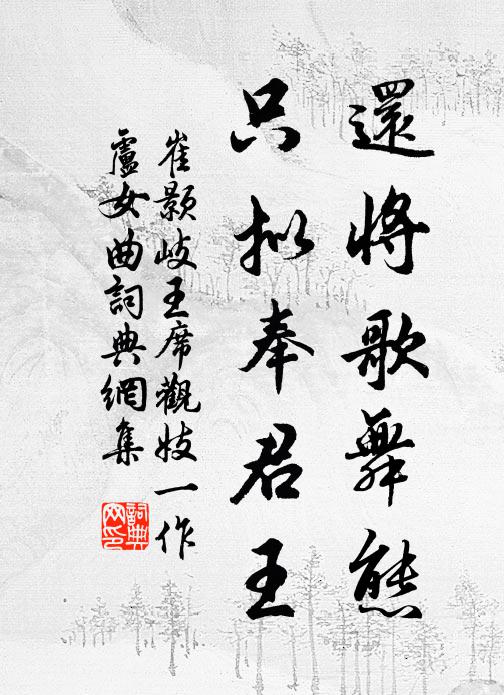 還將歌舞態
只拟奉君王
崔颢岐王席觀妓一作
盧女曲詞典網集
詞典
网印